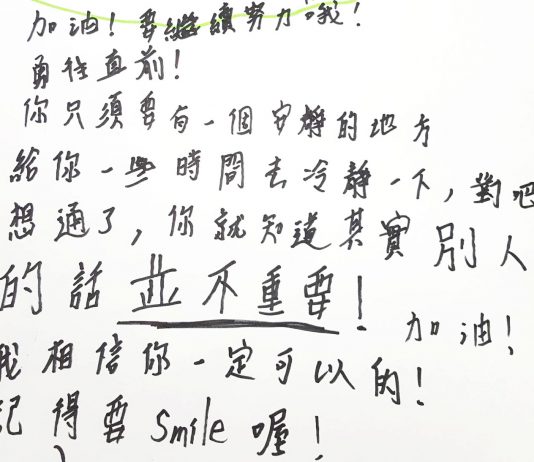 加油！要繼續努力哦！
勇往直前！
你只須要有一個安靜的地方
給你一些時間去冷靜一下，對吧
想通了，你就知道其實別人
的話並不重要！
加油！
我相信你一定可以的！
記得要 Smile 喔！